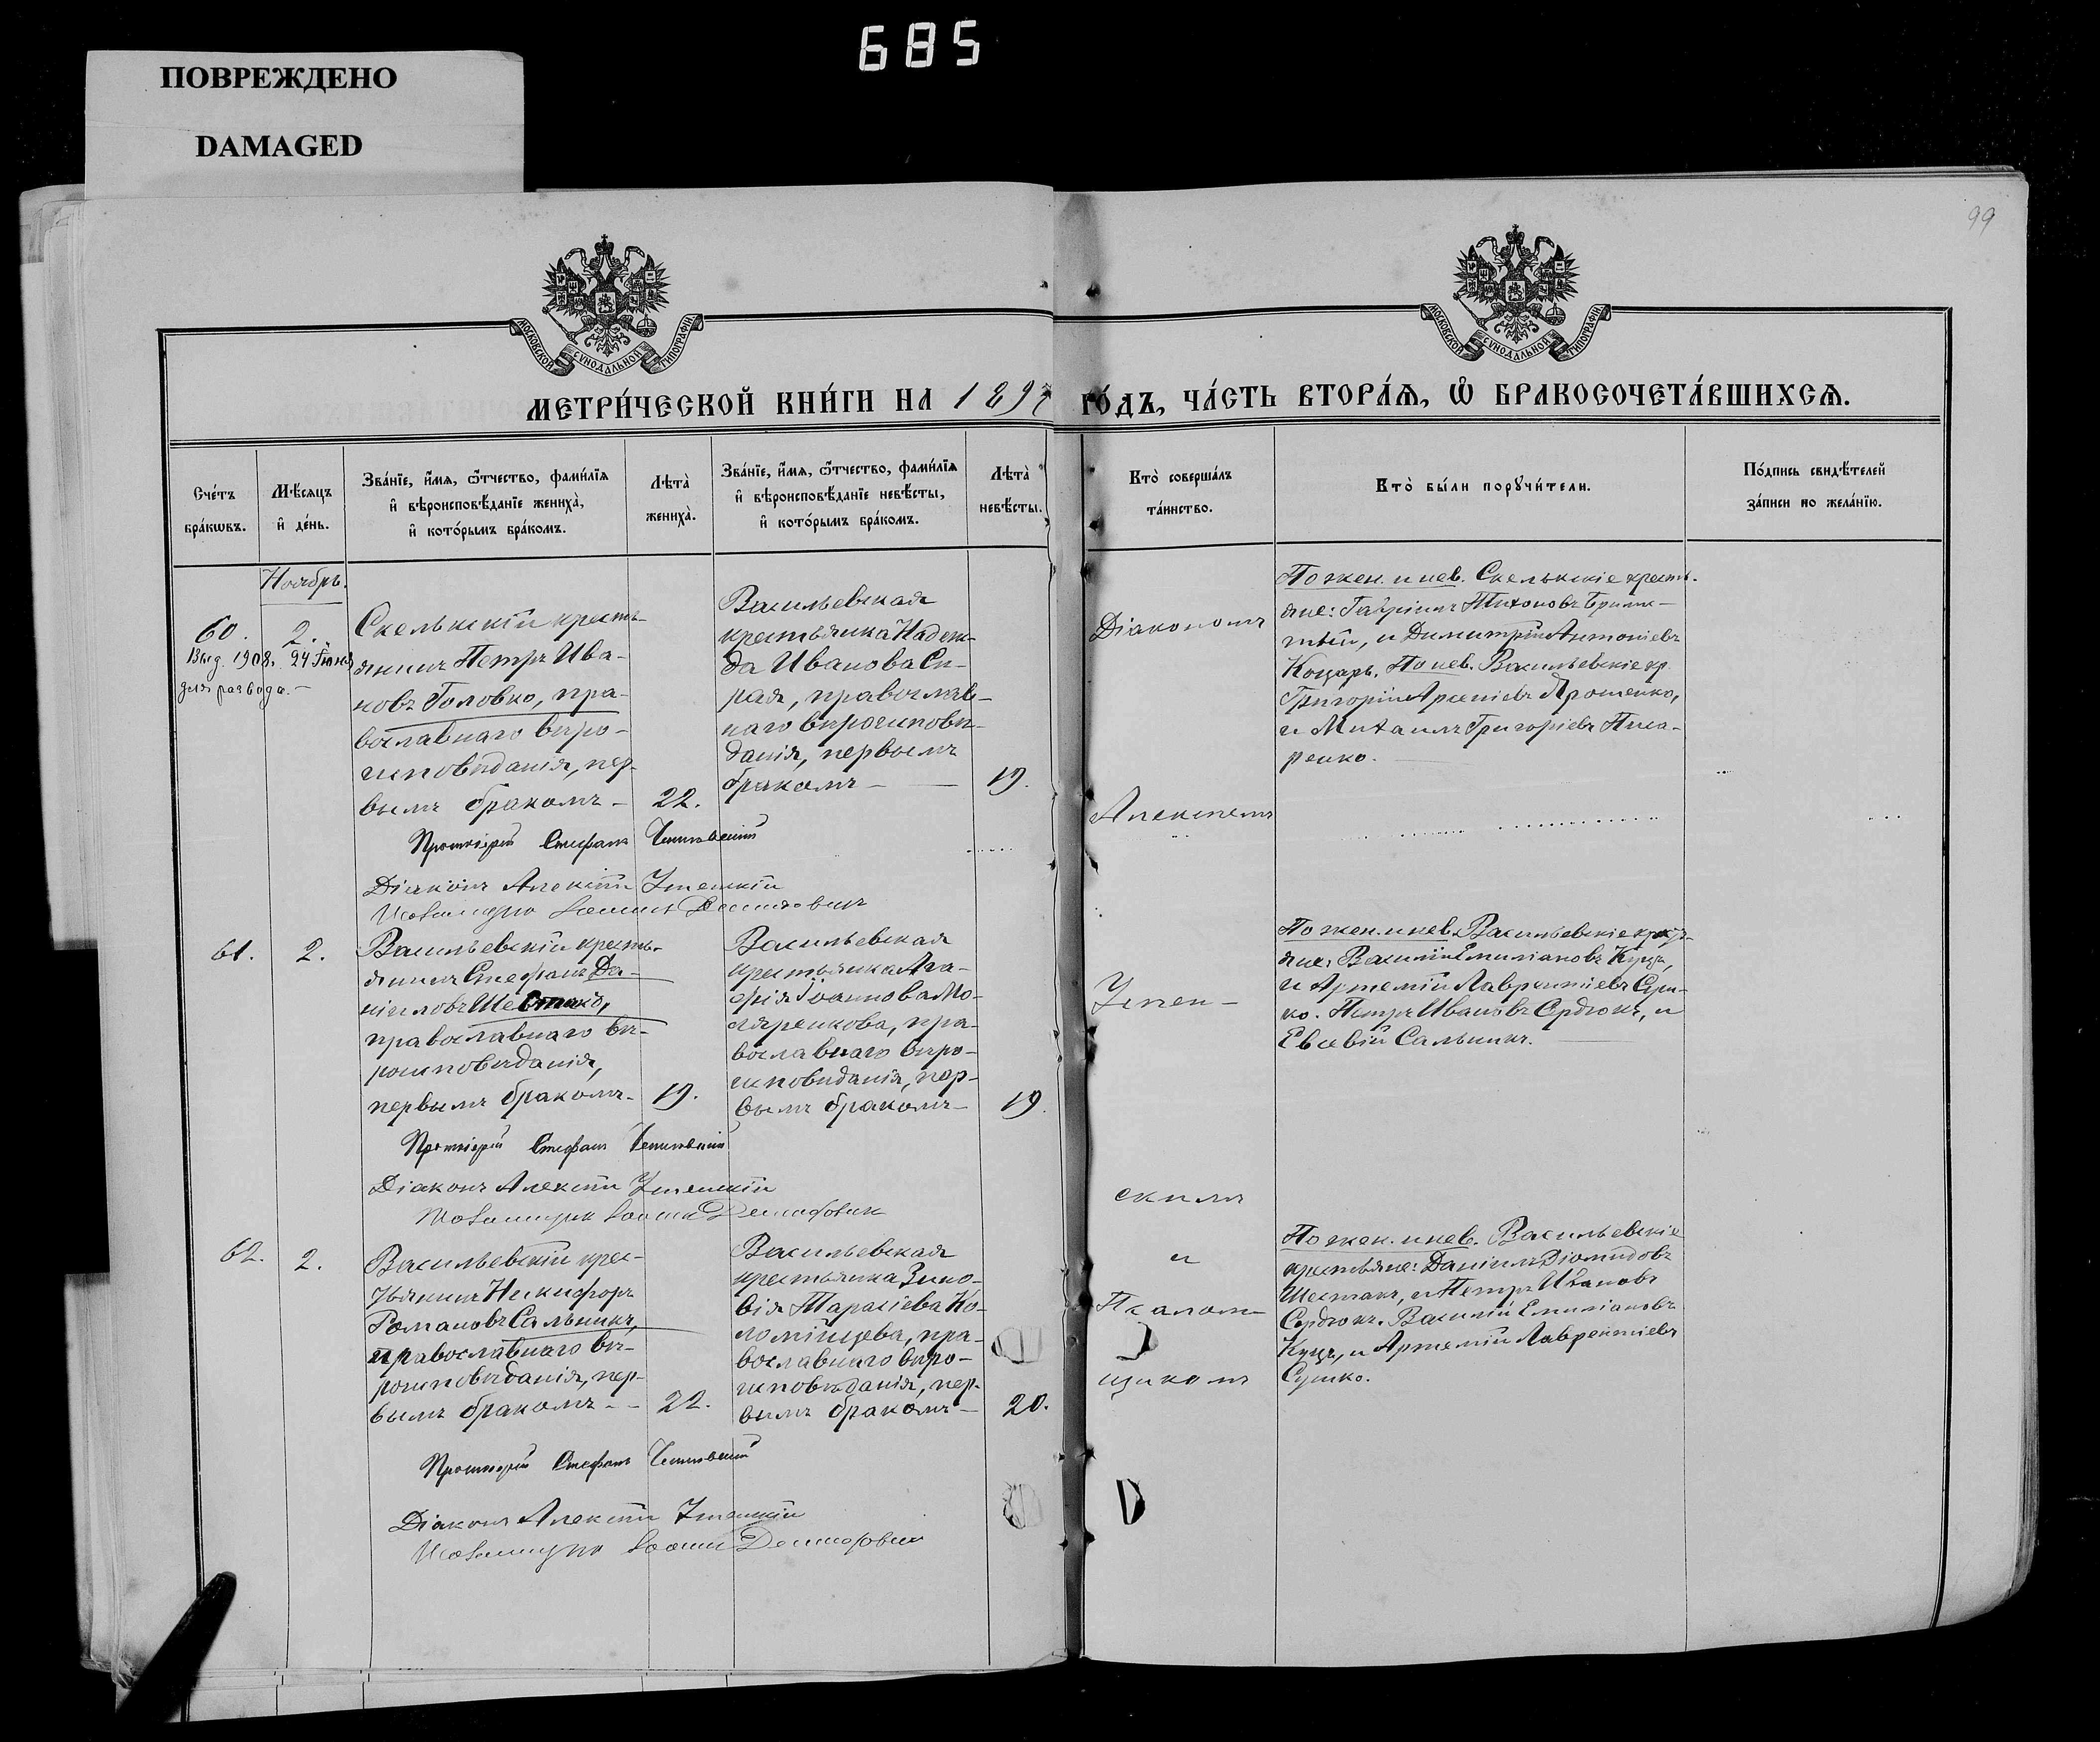 685
ПОВРЕЖДЕНО
DAMAGED
99
МОСКОВСКОЙ СѴНОДАЛЬНОЙ ТИПОГРАФІИ
МОСКОВСКОЙ СѴНОДАЛЬНОЙ ТИПОГРАФІИ
МЕТРИ́ЧЕСКОЙ КНИ́ГИ НА 1897 ГО́ДЪ, ЧА́СТЬ ВТОРА́Ѧ, Ѽ БРАКОСОЧЕТА́ВШИХСѦ.
Сче́тъ
бра́кѡвъ.
Мѣ́сѧцъ
и҆ де́нь.
Зва́нїе, и҆́мѧ, ѻ҆́тчество, фами́лїѧ
и҆ вѣроисповѣ́данїе жениха̀,
и҆ кото́рымъ бра́комъ.
Лѣта̀
жениха̀.
Зва́нїе, и҆́мѧ, ѻ҆́тчество, фами́лїѧ
и҆ вѣроисповѣ́данїе невѣ́сты,
и҆ кото́рымъ бра́комъ.
Лѣта̀
невѣ́сты.
Кто̀ соверша́лъ
та́инство.
Кто̀ бы́ли порꙋчи́тели.
По́дпись свидѣ́телей
за́писи по жела́нїю.
Ноябрь.
60.
2.
Выд. 1908. 24 Іюня
для развода.—
Скельскій кресть-
янинъ Петръ Ива-
новъ Головко, пра-
вославнаго вѣро-
исповѣданія, пер-
вымъ бракомъ —
22.
Васильевская
крестьянка Надеж-
да Иванова Сѣ-
рая, православ-
наго вѣроисповѣ-
данія, первымъ
бракомъ —
19.
Діакономъ
Алексѣемъ
По жен. и нев. Скельскіе кресть-
яне: Гавріилъ Тихоновъ
и Димитрій Антоніевъ
Коцарь. По нев. Васильевскіе кр.
Григорій Арсеніевъ Ярошенко,
и Михаилъ Григоріевъ Писа-
ренко.
Протоіерей Стефанъ
Діаконъ Алексѣй Успенскій
61.
2.
Васильевскій кресть-
янинъ Стефанъ Да-
ніиловъ Шестако,
православнаго вѣ-
роисповѣданія,
первымъ бракомъ —
19.
Васильевская
крестьянка Ага-
фія Іоаннова Мо-
ляренкова, пра-
вославнаго вѣро-
исповѣданія, пер-
вымъ бракомъ —
19.
Успен-
скимъ
По жен. и нев. Васильевскіе крестья-
яне: Василій Емиліановъ Куцъ,
и Артемій Лаврентіевъ Суш-
ко. Петръ Ивановъ Сердюкъ, и
Евсевій Сальникъ.
Протоіерей Стефанъ
Діаконъ Алексѣй Успенскій
62.
2.
Васильевскій крес-
тьянинъ Никифоръ
Романовъ Сальникъ,
православнаго вѣ-
роисповѣданія, пер-
вымъ бракомъ —
22.
Васильевская
крестьянка Зино-
вія Тарасіева Ко-
ломійцева, пра-
вославнаго вѣро-
исповѣданія, пер-
вымъ бракомъ —
20.
и
Псалом-
щикомъ
По жен. и нев. Васильевскіе
крестьяне: Даніилъ Діомидовъ
Шестакъ, и Петръ Ивановъ
Сердюкъ. Василій Емиліановъ
Куцъ, и Артемій Лаврентіевъ
Сушко.
Протоіерей Стефанъ
Діаконъ Алексѣй Успенскій